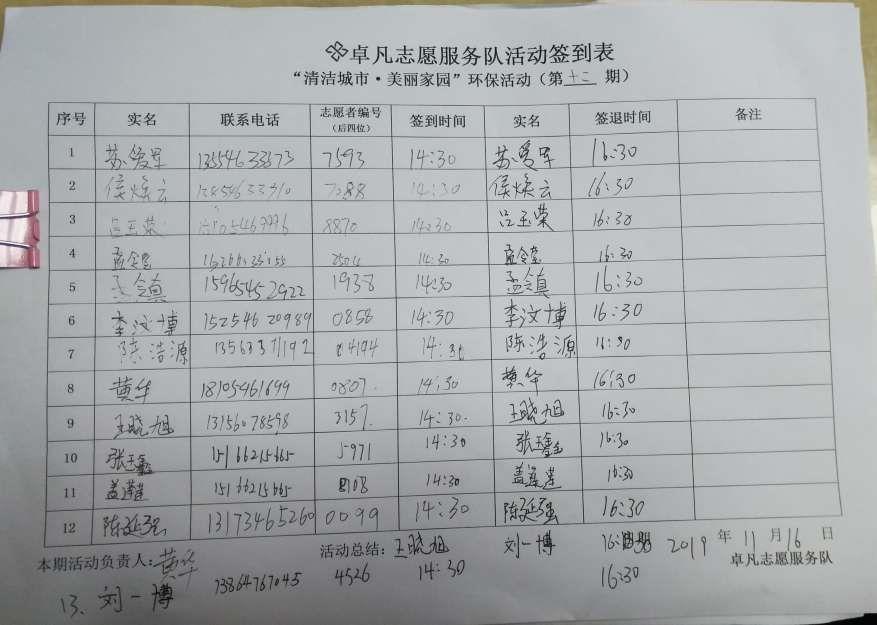 卓凡志愿服务队活动签到表
“清洁城市·美丽家园”环保活动（第十二期）
序号 实名 联系电话 志愿者编号（后四位） 签到时间 实名 签退时间 备注
1 苏爱军 13554633373 7593 14:30 苏爱军 16:30
2 侯焕云 7288 14:30 侯焕云 16:30
3 吕玉荣 8870 14:30 吕玉荣 16:30
4 孟令莹 14:30 孟令莹 16:30
5 孟令真 15965452922 1938 14:30 孟令真 16:30
6 李汶博 15254620989 0858 14:30 李汶博 16:30
7 陈浩源 13563371192 4194 14:30 陈浩源 16:30
8 黄华 18105461699 0807. 14:30 黄华 16:30
9 王晓旭 13156078598 3157. 14:30. 王晓旭 16:30
10 张玉鑫 15166215665 5971 14:30 张玉鑫 16:30
11 盖莲莲 15166215665 14:30 盖莲莲 16:30
12 陈延强 13173465260 0099 14:30 陈延强 16:30
本期活动负责人：黄华 活动总结：王晓旭 刘一博 2019年11月16日
卓凡志愿服务队
13、刘一博 13864767045 4526 14:30 16:30